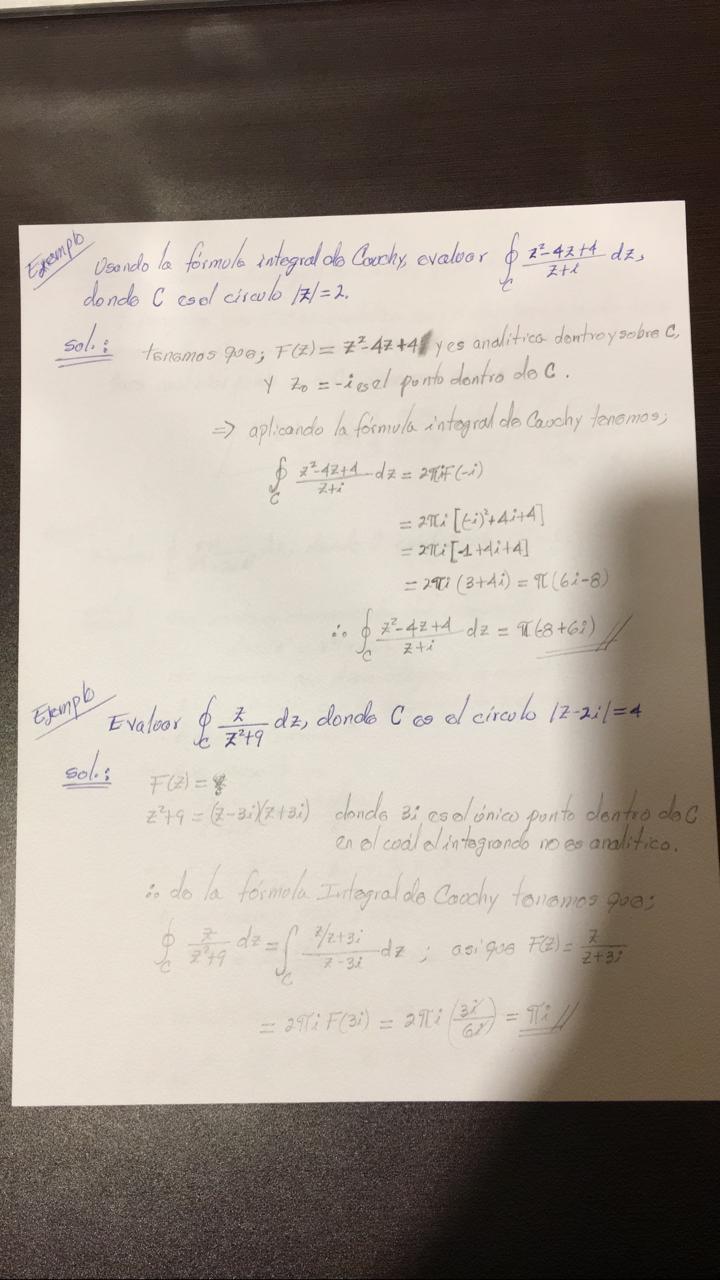 Ejemplo
Usando la fórmula integral de Cauchy, evaluar ∮_C (z²-4z+4)/(z+i) dz,
donde C es el circulo |z|=2.
sol.: tenemos que; F(z) = z²-4z+4 y es analitica dentro y sobre C,
y z₀ = -i es el punto dentro de C.
⇒ aplicando la fórmula integral de Cauchy tenemos;
∮_C (z²-4z+4)/(z+i) dz = 2πiF(-i)
= 2πi [(-i)²+4i+4]
= 2πi [-1+4i+4]
= 2πi (3+4i) = π(6i-8)
∴ ∮_C (z²-4z+4)/(z+i) dz = π(-8+6i) //
Ejemplo
Evaluar ∮_C z/(z²+9) dz, donde C es el círculo |z-2i|=4
sol.:
F(z) =
z²+9 = (z-3i)(z+3i) donde 3i es el único punto dentro de C
en el cuál el integrando no es analitico.
∴ de la fórmula Integral de Cauchy tenemos que;
∮_C z/(z²+9) dz = ∫_C (z/z+3i)/(z-3i) dz ; asi que F(z) = z/(z+3i)
= 2πi F(3i) = 2πi (3i/6i) = πi //